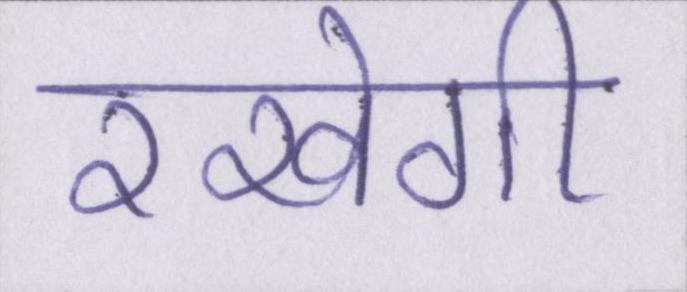 रखेगी